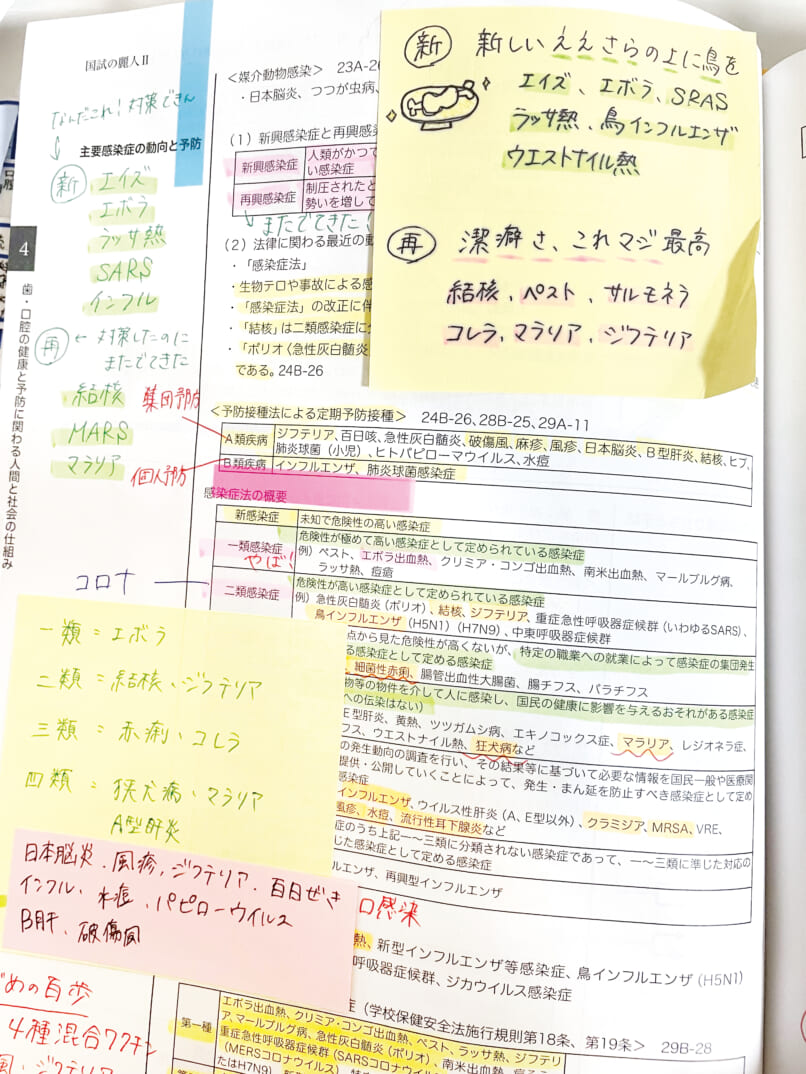 国試の麗人Ⅱ
なんだこれ!対策できん
主要感染症の動向と予防
新 エイズ
エボラ
ラッサ熱
SARS
インフル
再 ← 対策したのに
またでてきた
結核
MARS
マラリア
集団予防
個人予防
4
歯・口腔の健康と予防に関わる人間と社会の仕組み
<媒介動物感染> 23A-26
・日本脳炎、つつが虫病、
(1)新興感染症と再興感染
新興感染症 人類がかつて
い感染症
再興感染症 制圧されたと
勢いを増して
またでてきた!
(2)法律に関わる最近の動
・「感染症法」
・生物テロや事故による感
・「感染症法」の改正に伴
・「結核」は二類感染症に
・「ポリオ〈急性灰白髄炎
である。24B-26
新 新しいええさらの上に鳥を
エイズ、エボラ、SRAS
ラッサ熱、鳥インフルエンザ
ウエストナイル熱
再 潔癖さ、これマジ最高
結核、ペスト、サルモネラ
コレラ、マラリア、ジフテリア
<予防接種法による定期予防接種> 24B-26、28B-25、29A-11
A類疾病 ジフテリア、百日咳、急性灰白髄炎、破傷風、麻疹、風疹、日本脳炎、B型肝炎、結核、ヒブ、
肺炎球菌(小児)、ヒトパピローマウイルス、水痘
B類疾病 インフルエンザ、肺炎球菌感染症
感染症法の概要
新感染症 未知で危険性の高い感染症
一類感染症 危険性が極めて高い感染症として定められている感染症
やば! 例)ペスト、エボラ出血熱、クリミア・コンゴ出血熱、南米出血熱、マールブルグ病、
ラッサ熱、痘瘡
コロナ
二類感染症 危険性が高い感染症として定められている感染症
例)急性灰白髄炎(ポリオ)、結核、ジフテリア、重症急性呼吸器症候群(いわゆるSARS)、
鳥インフルエンザ(H5N1)(H7N9)、中東呼吸器症候群
点から見た危険性が高くないが、特定の職業への就業によって感染症の集団発生
る感染症として定める感染症
、細菌性赤痢、腸管出血性大腸菌、腸チフス、パラチフス
物等の物件を介して人に感染し、国民の健康に影響を与えるおそれがある感染症
への伝染はない)
E型肝炎、黄熱、ツツガムシ病、エキノコックス症、マラリア、レジオネラ症、
フス、ウエストナイル熱、狂犬病など
の発生動向の調査を行い、その結果等に基づいて必要な情報を国民一般や医療関
提供・公開していくことによって、発生・まん延を防止すべき感染症として定め
感染症
インフルエンザ、ウイルス性肝炎(A、E型以外)、クラミジア、MRSA、VRE、
風疹、水痘、流行性耳下腺炎など
症のうち上記一〜三類に分類されない感染症であって、一〜三類に準じた対応の
じた感染症として定める感染症
ルエンザ、再興型インフルエンザ
一類=エボラ
二類=結核、ジフテリア
三類=赤痢、コレラ
四類=狂犬病、マラリア
A型肝炎
日本脳炎、風疹、ジフテリア、百日ぜき
インフル、水痘、パピローウイルス
B肝、破傷風
口感染
熱、新型インフルエンザ等感染症、鳥インフルエンザ(H5N1)
呼吸器症候群、ジカウイルス感染症
症(学校保健安全法施行規則第18条、第19条> 29B-28
第一種 エボラ出血熱、クリミア・コンゴ出血熱、ペスト、ラッサ熱、ジフテリ
ア、マールブルグ病、急性灰白髄炎(ポリオ)、南米出血熱、
重症急性呼吸器症候群(SARSコロナウイルス)、
(MERSコロナウイルス)
たはH7N9)
めの百歩
4種混合ワクチン
風・ジフテリア